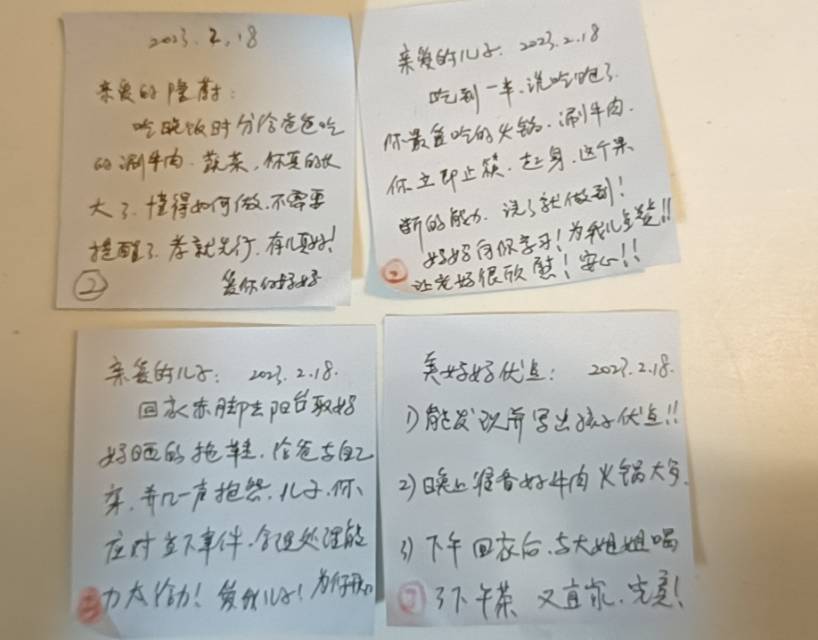 2023.2.18
亲爱的隆蔚：
吃晚饭时分给爸爸吃
的涮牛肉、蔬菜，你真的长
大了，懂得如何做，不需要
提醒了，孝就先行，有順好！
②
爱你的好好
亲爱的儿子：2023.2.18
吃到一半，说吃饱了
你最喜吃的火锅、涮牛肉，
你立即止筷、起身，这个果
断的能力，说了就做到！
好好向你学习！为我儿点赞!!
让老好很欣慰！安心!!
亲爱的儿子：2023.2.18.
回家赤脚去阳台取好
好晒的拖鞋，给爸与自己
穿，并几一声抱怨，儿子，你
应对当下事件，合理处理能
力太给力！爱我儿子！为你
美好好优点：2023.2.18.
1)能发现并写出孩子优点!!
2)晚上准备好牛肉火锅大餐.
3)下午回家后，与大姐姐喝
了下午茶 又直家，完美！